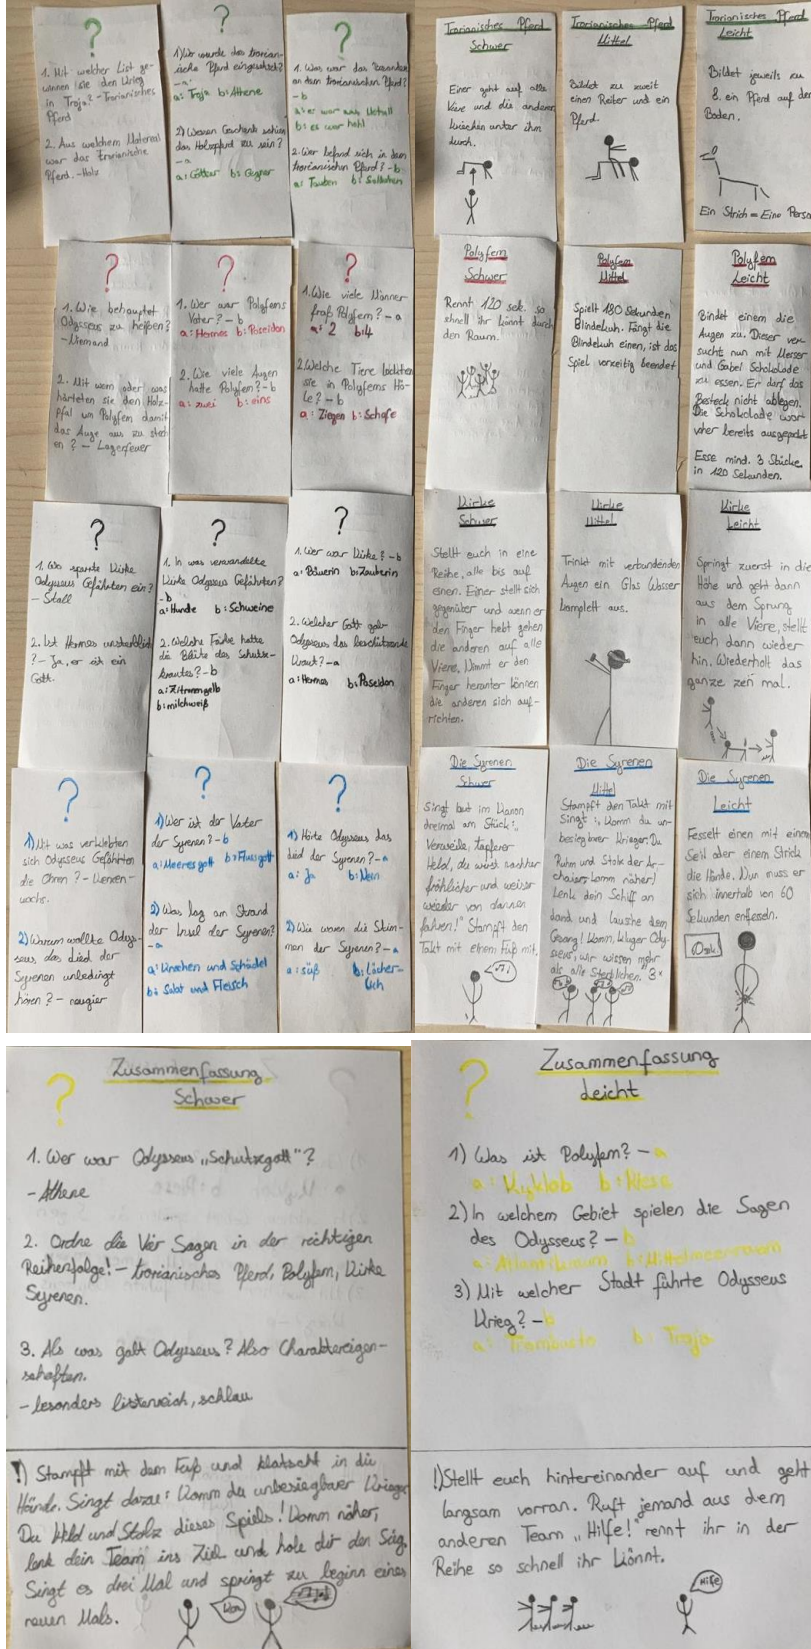 ?
1. Mit welcher List ge-
winnen sie den Krieg
in Troja? - Trorianisches
Pferd
2. Aus welchem Material
war das trorianische
Pferd. - Holz
?
1) Wo wurde das trorian-
ische Pferd eingeschifft?
- a -
a: Troja b: Athene
2) Wessen Geschenk schien
das Holzpferd zu sein?
- a
a: Götter b: Gegner
?
1. Was war das Besondere
an dem trorianischen Pferd?
- b
a: er war aus Metall
b: es war hohl
2. Wer befand sich in dem
trorianischen Pferd? - b
a: Tauben b: Soldaten
Trorianisches Pferd
Schwer
Einer geht auf alle
Viere und die anderen
kriechen unter ihm
durch.
Trorianisches Pferd
Mittel
Bildet zu zweit
einen Reiter und ein
Pferd.
Trorianisches Pferd
Leicht
Bildet jeweils zu
8. ein Pferd auf dem
Boden.
Ein Strich = Eine Perso
?
1. Wie behauptet
Odysseus zu heißen?
- Niemand
2. Mit wem oder was
härteten sie den Holz-
pfal um Polyfem damit
das Auge aus zu stech
en? - Lagerfeuer
?
1. Wer war Polyfems
Vater? - b
a: Hermes b: Poseidon
2. Wie viele Augen
hatte Polyfem? - b
a: zwei b: eins
?
1. Wie viele Männer
fraß Polyfem? - a
a: 2 b: 4
2. Welche Tiere lockten
sie in Polyfems Hö-
le? - b
a: Ziegen b: Schafe
Polyfem
Schwer
Rennt 120 sek. so
schnell ihr könnt durch
den Raum.
Polyfem
Mittel
Spielt 180 Sekunden
Blindekuh. Fängt die
Blindekuh einen, ist das
Spiel vorzeitig beendet
Polyfem
Leicht
Bindet einem die
Augen zu. Dieser ver-
sucht nun mit Messer
und Gabel Schokolade
zu essen. Er darf das
Besteck nicht ablegen.
Die Schokolade war
vorher bereits ausgepackt
Esse mind. 3 Stücke
in 120 Sekunden.
?
1. Wo sperrte Kirke
Odysseus Gefährten ein?
- Stall
2. Ist Hermes unsterblich
? - Ja, er ist ein
Gott.
?
1. In was verwandelte
Kirke Odysseus Gefährten?
- b
a: Hunde b: Schweine
2. Welche Farbe hatte
die Blüte des Schutz-
krautes? - b
a: Zitronengelb
b: milchweiß
?
1. Wer war Kirke? - b
a: Bäuerin b: Zauberin
2. Welcher Gott gab
Odysseus das beschützende
Kraut? - a
a: Hermes b: Poseidon
Kirke
Schwer
Stellt euch in eine
Reihe, alle bis auf
einen. Einer stellt sich
gegenüber und wenn er
den Finger hebt gehen
die anderen auf alle
Viere. Nimmt er den
Finger herunter können
die anderen sich auf-
richten.
Kirke
Mittel
Trinkt mit verbundenden
Augen ein Glas Wasser
komplett aus.
Kirke
Leicht
Springt zuerst in die
Höhe und geht dann
aus dem Sprung
in alle Viere, stellt
euch dann wieder
hin. Wiederholt das
ganze zen mal.
?
1) Mit was verklebten
sich Odysseus Gefährten
die Ohren? - Kerzen-
wachs.
2) Warum wollte Odys-
seus, das Lied der
Syrenen unbedingt
hören? - neugier
?
1) Wer ist der Vater
der Syrenen? - b
a: Meeresgott b: Flussgott
2) Was lag am Strand
der Insel der Syrenen?
- a
a: Knochen und Schädel
b: Salat und Fleisch
?
1) Hörte Odysseus das
Lied der Syrenen? - a
a: Ja b: Nein
2) Wie waren die Stim-
men der Syrenen? - a
a: süß b: Lächer-
lich
Die Syrenen
Schwer
Singt laut im Kanon
dreimal am Stück:„
Verweile, tapferer
Held, du wirst nachher
fröhlicher und weiser
wieder von dannen
fahren!" Stampft den
Takt mit einem Fuß mit.
Die Syrenen
Mittel
Stampft den Takt mit
Singt:„ Komm du un-
besiegbarer Krieger. Du
Ruhm und Stolz der Ar-
chaier, komm näher!
Lenk dein Schiff an
Land und lausche dem
Gesang! Komm, kluger Ody-
sseus, wir wissen mehr
als alle Sterblichen. 3x
Die Syrenen
Leicht
Fesselt einen mit einem
Seil oder einem Strick
die Hände. Nun muss er
sich innerhalb von 60
Sekunden entfesseln.
?
Zusammenfassung
Schwer
1. Wer war Odysseus „Schutzgott"?
- Athene
2. Ordne die Vier Sagen in der richtigen
Reihenfolge! - trorianisches Pferd, Polyfem, Kirke
Syrenen.
3. Als was galt Odysseus? Also Charaktereigen-
schaften.
- besonders listenreich, schlau
!) Stampft mit dem Fuß und klatscht in die
Hände. Singt dazu: Komm du unbesiegbarer Krieger
Du Held und Stolz dieses Spiels! Komm näher,
lenk dein Team ins Ziel und hole dir den Sieg.
Singt es drei Mal und springt zu beginn eines
neuen Mals.
?
Zusammenfassung
Leicht
1) Was ist Polyfem? - a
a: Kyklob b: Riese
2) In welchem Gebiet spielen die Sagen
des Odysseus? - b
a: Atlantikraum b: Mittelmeerraum
3) Mit welcher Stadt führte Odysseus
Krieg? - b
a: b: Troja
!) Stellt euch hintereinander auf und geht
langsam vorran. Ruft jemand aus dem
anderen Team „Hilfe!" rennt ihr in der
Reihe so schnell ihr könnt.
Hilfe